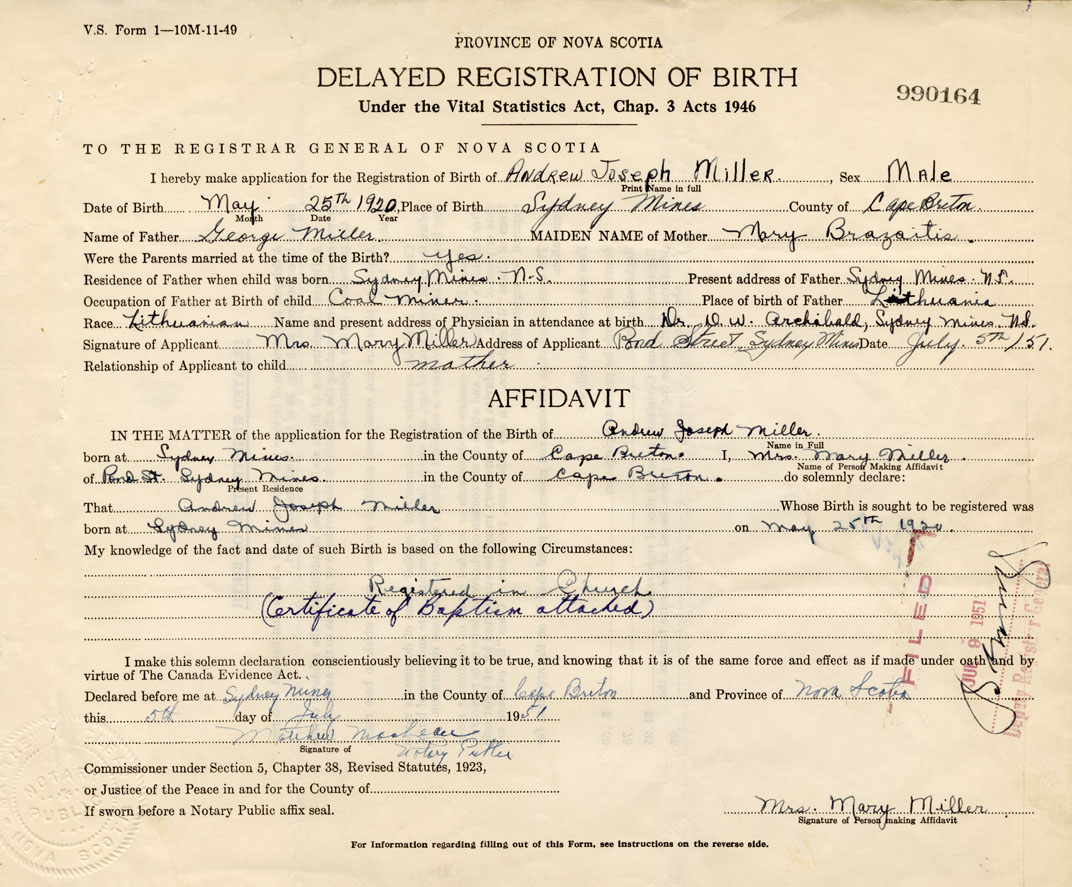 V.S. Form 1—10M-11-49
PROVINCE OF NOVA SCOTIA
DELAYED REGISTRATION OF BIRTH
990164
Under the Vital Statistics Act, Chap. 3 Acts 1946
TO THE REGISTRAR GENERAL OF NOVA SCOTIA
I hereby make application for the Registration of Birth of Andrew Joseph Miller, Sex Male
Print Name in full
Date of Birth May 25th 1920, Place of Birth Sydney Mines County of Cape Breton
Month Date Year
Name of Father George Miller MAIDEN NAME of Mother Mary Brazaitis.
Were the Parents married at the time of the Birth? yes.
Residence of Father when child was born Sydney Mines. N.S. Present address of Father Sydney Mines. N.S.
Occupation of Father at Birth of child Coal Miner. Place of birth of Father Lithuania
Race Lithuanian Name and present address of Physician in attendance at birth Dr. D. W. Archibald, Sydney Mines. N.S.
Signature of Applicant Mrs. Mary Miller Address of Applicant Pond Street, Sydney Mines Date July. 5th/51.
Relationship of Applicant to child mother
AFFIDAVIT
IN THE MATTER of the application for the Registration of the Birth of Andrew Joseph Miller.
Name in Full
born at Sydney Mines. in the County of Cape Breton. I, Mrs. Mary Miller.
Name of Person Making Affidavit
of Pond St. Sydney Mines. in the County of Cape Breton. do solemnly declare:
Present Residence
That Andrew Joseph Miller Whose Birth is sought to be registered was
born at Sydney Mines on May 25th 1920.
My knowledge of the fact and date of such Birth is based on the following Circumstances:
Registered in Church
(Certificate of Baptism attached)
FILED
JUL 9 1951
Deputy Registrar General
I make this solemn declaration conscientiously believing it to be true, and knowing that it is of the same force and effect as if made under oath and by
virtue of The Canada Evidence Act.
Declared before me at Sydney Mines in the County of Cape Breton and Province of Nova Scotia
this 5th day of July 1951
Notary Public
Signature of
Commissioner under Section 5, Chapter 38, Revised Statutes, 1923,
or Justice of the Peace in and for the County of
If sworn before a Notary Public affix seal.
NOTARY PUBLIC NOVA SCOTIA
Mrs. Mary Miller
Signature of Person making Affidavit
For Information regarding filling out of this Form, see instructions on the reverse side.